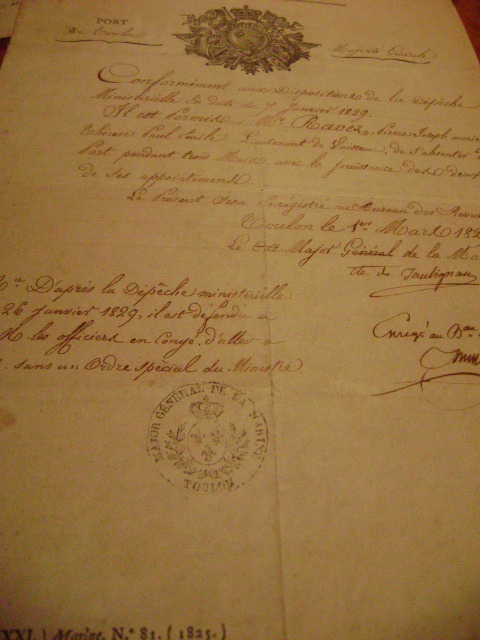 PORT
de Toulon
Majorité Générale
Conformément aux Dispositions de la Dépêche
Ministérielle en date du 7 Janvier 1829.
Il est Permis à Mr. Ravez Pierre Joseph
Paul Emile Lieutenant de Vaisseau, de s'absenter
Port pendant trois Mois avec la jouissance des deux
de ses appointemens.
Le Présent sera Enregistré au Bureau des Revues
Toulon le 1er Mars 182
Le CA Major Général de la Ma
D'après la Dépêche ministérielle
26 Janvier 1829, il est défendu à
M. les officiers en Congé, d'aller à
sans un Ordre spécial du Ministre
Enregé au Bau
MAJOR GÉNÉRAL DE LA MARINE
TOULON
XXI.) Marine. N.º 81. (1825.)